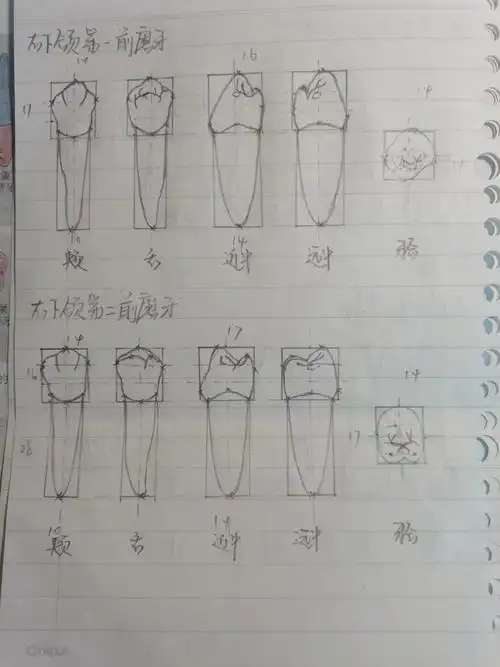 右下颌第一前磨牙
14 16 14
17
10 14
颊 舌 近中 远中 𬌗
右下颌第二前磨牙
14 17 14
16 17
28
10 14
颊 舌 近中 远中 𬌗